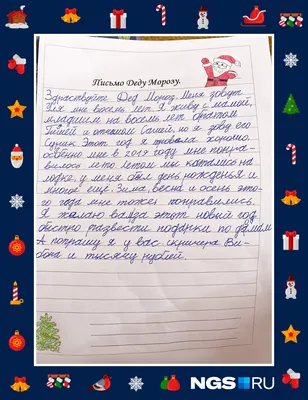 Письмо Деду Морозу.
Здраствуйте Дед Мороз. Меня зовут
мне восемь лет. Я живу с мамой,
младшим на восемь лет братом
и отчимом Сашей, но я зову его
Этот год я провела хорошо.
особенно мне в 2019 году мне понра-
вилось лето летом мы катались на
лодке, у меня был день рожденья и
многое ещё. Зима, весна и осень это-
го года мне тоже понравились.
Я желаю вам в этот новый год
быстро развести подарки по домам
А попрошу я у вас скричера Ви-
бона и тысячу рублей.
NGS RU